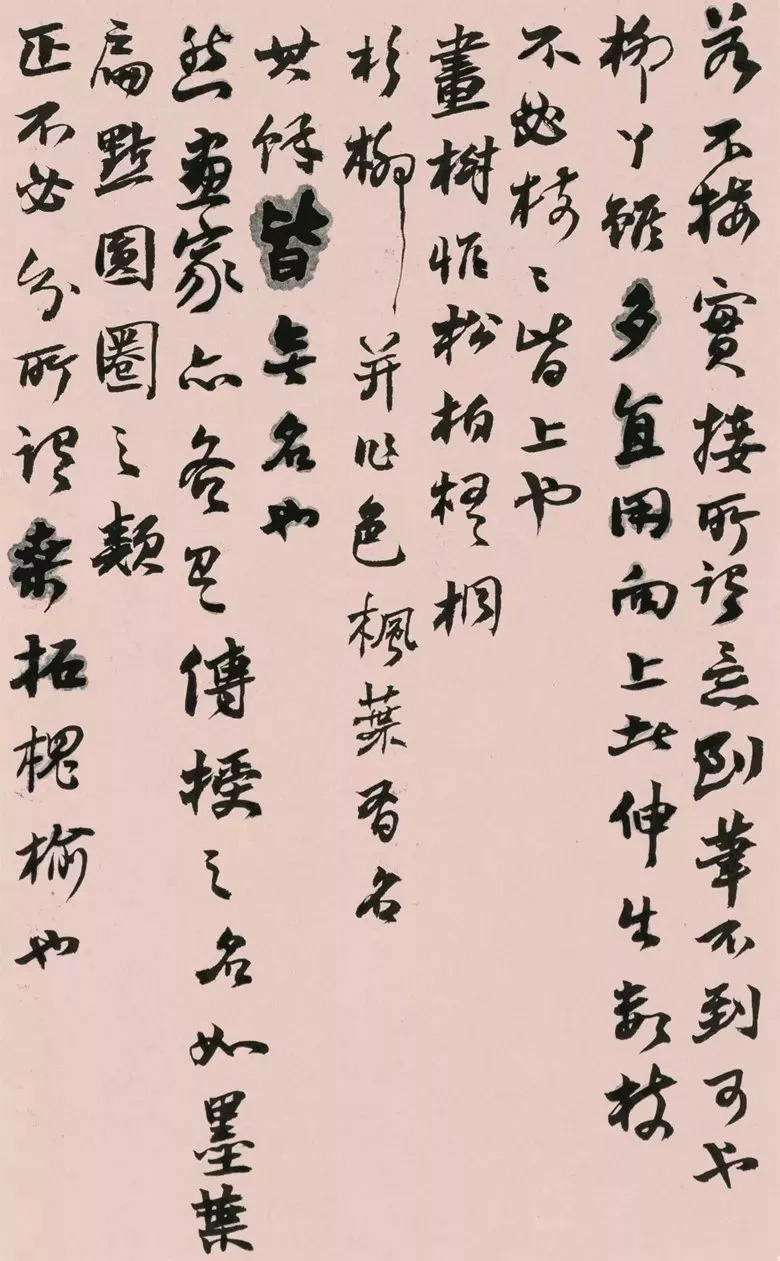 若不接實接所謂意到筆不到可也
柳丫雖多宜用向上者伸出數枝
不必枝〻皆上也
畫樹惟松柏梧桐
杉柳并作色楓葉有名
其餘皆無名也
然畫家亦各傳授之名如墨葉
扁點圓圈之類
正不必分所謂桑柘槐榆也